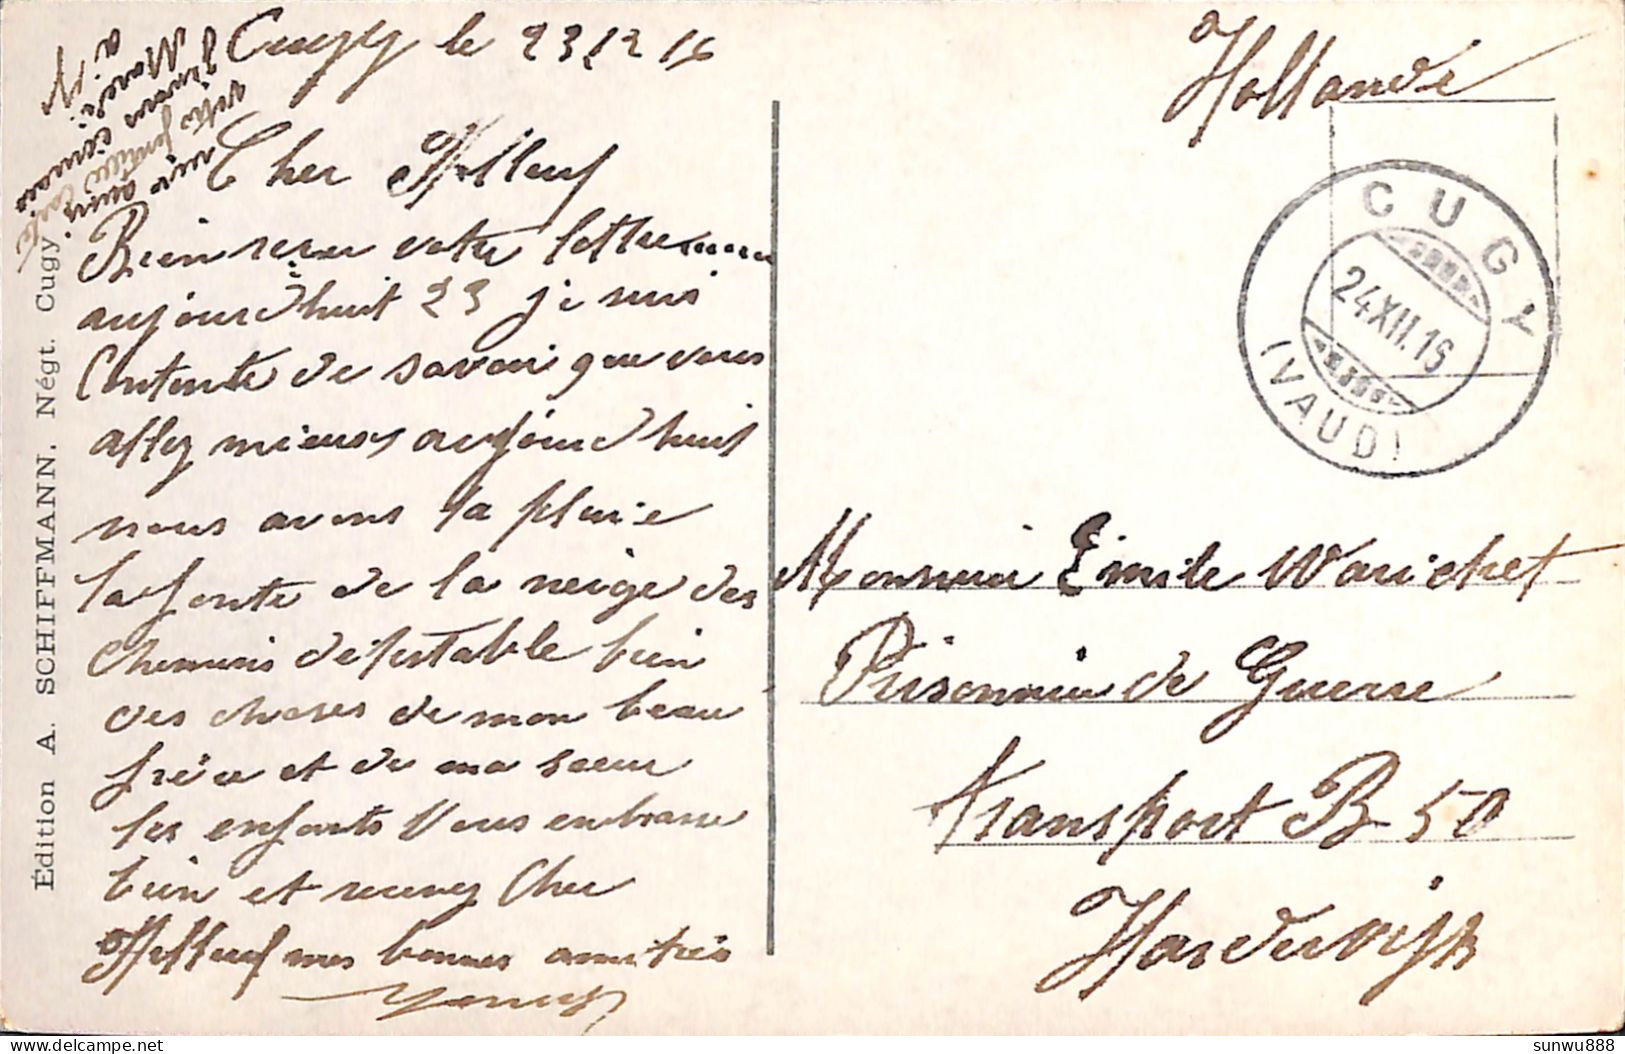 Cugy le 23 12 16
Cher
Bien reçu votre lettre
aujourd'huit 23 je suis
Contente de savoir que vous
allez mieux aujourd'huit
nous avons la pluie
la fonte de la neige des
chemins détestable bien
des choses de mon beau
frère et de ma soeur
les enfants Vous embrasse
bien et recevez Cher
mes bonnes amitiés
Édition A. SCHIFFMANN, Négt. Cugy
Hollande
CUGY
24 XII. 16
(VAUD)
Monsieur Emile Warichet
Prisonnier de Guerre
transport B 50
Harderwijk
delcampe.net
sunwu888